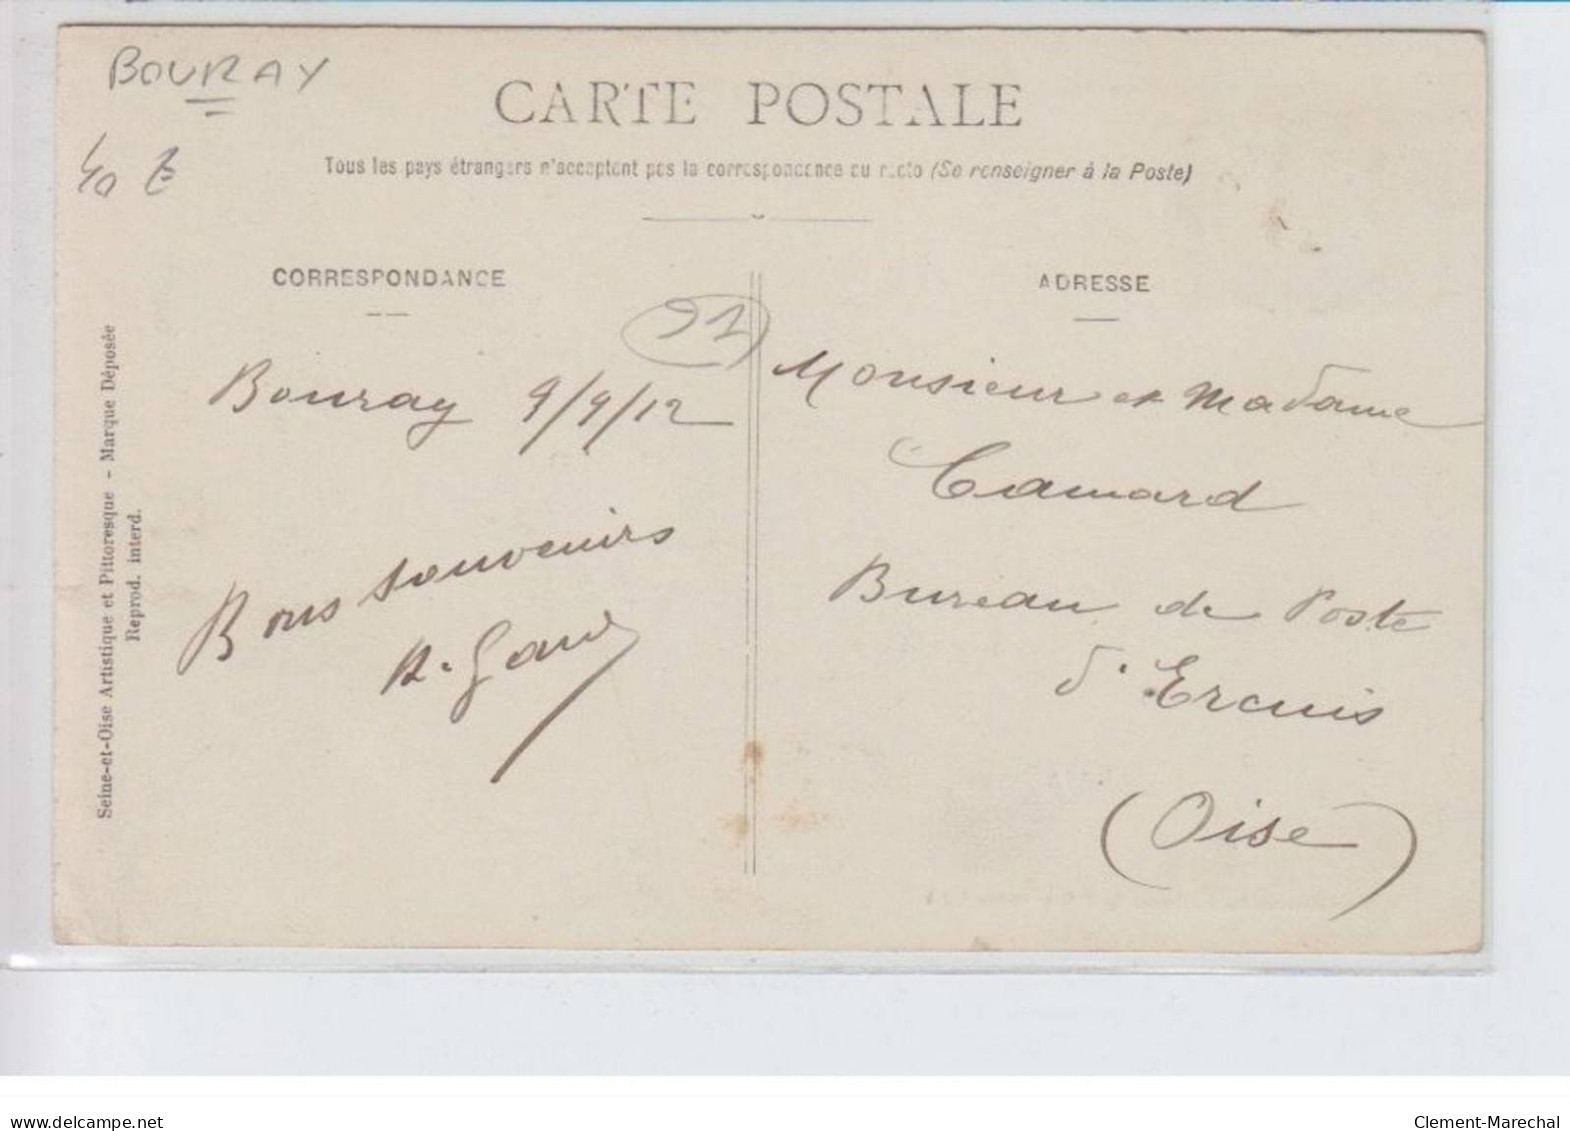 BOURAY
40 E
CARTE POSTALE
Tous les pays étrangers n'acceptent pas la correspondance au recto (Se renseigner à la Poste)
CORRESPONDANCE
ADRESSE
91
Bouray 9/9/12
Bons souvenirs
Monsieur et Madame
Camard
Bureau de Poste
d'Ercuis
(Oise)
Seine-et-Oise Artistique et Pittoresque - Marque Déposée
Reprod. interd.
www.delcampe.net
Clement-Marechal